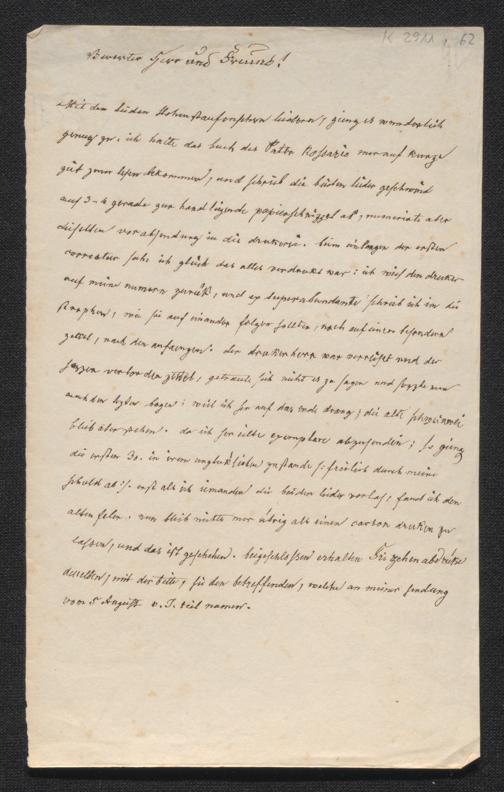 K 2911, 62
Bewerter Herr und Freund!
Mit den beiden Hohenstaufenstern liedern, gieng es wunderlich
genug zu. ich hatte das buch des Pater Rossario nur auf kurze
zeit zum lesen bekommen, und schrieb die beiden lieder geschwind
auf 3-4 gerade zur hand liegende papierschnizzel ab, numerirte aber
dieselben vor absendung in die drukerei. beim einlangen der ersten
correctur sahe ich glüch das alles verdrukt war: ich wies den druker
auf meine numern zurük, und ex superabundante schrieb ich im die
strophen, wie sie auf einander folgen sollten, nach auf einen besondern
zettel, nach den anfaengen. der drukerherr war verreiset und der
sezzer verlor den zettel, getraute sich nicht es zu sagen und sezte nun
nach der lezter bogen: weil ich ser auf das ende drang; die alte
blib aber stehen. da ich ser eilte exemplare abzusenden; so gieng
die ersten 30. in irem unglüklichen zustande /: freilich durch meine
schuld ab :/. erst als ich iemanden die beiden lieder vorlas, fand ich den
alten feler. nun blib nichts mer übrig als einen carton druken zu
lassen, und das ist geschehen. beigeschlossen erhalten Sie zehen abdrüke
desselben, mit der bitte, sie den betreffenden, welche an meiner sendung
vom 5 August v. J. teil namen.